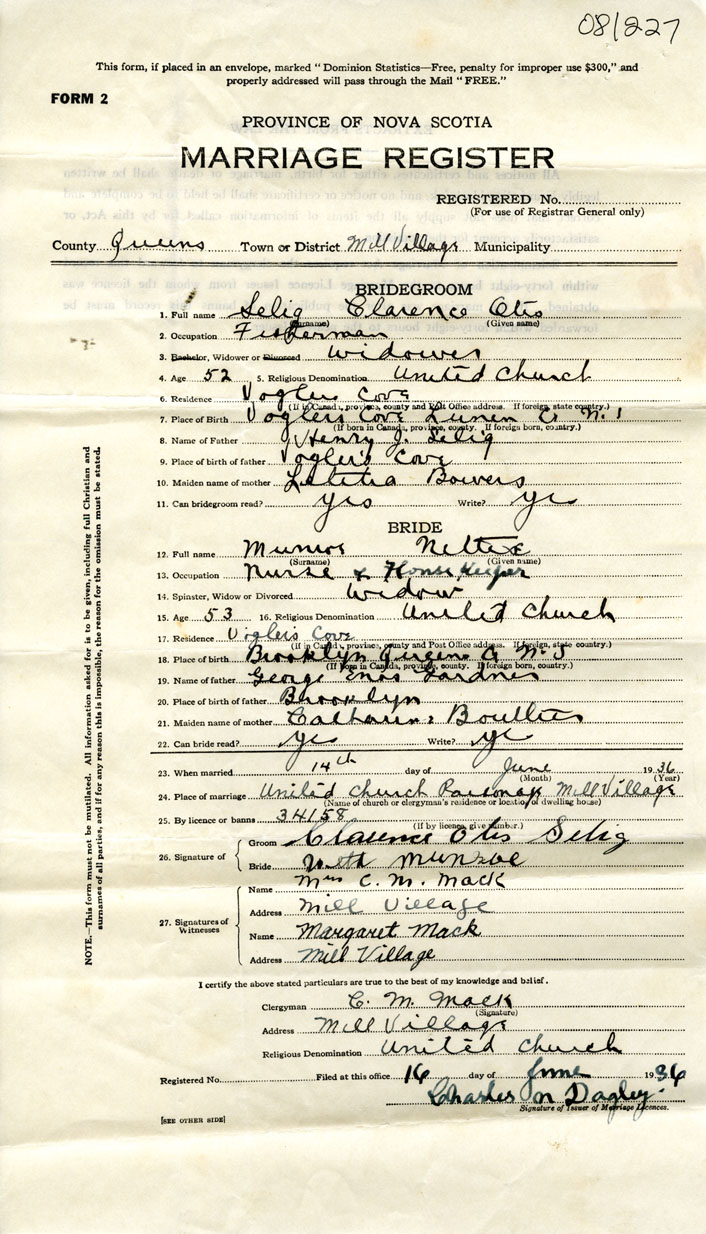 08/227
This form, if placed in an envelope, marked "Dominion Statistics—Free, penalty for improper use $300," and
properly addressed will pass through the Mail "FREE."
FORM 2
PROVINCE OF NOVA SCOTIA
MARRIAGE REGISTER
REGISTERED No.
(For use of Registrar General only)
County Queens Town or District Mill Village Municipality
BRIDEGROOM
1. Full name Selig Clarence Otis
(Surname) (Given name)
2. Occupation Fisherman
3. Bachelor, Widower or Divorced Widower
4. Age 52 5. Religious Denomination United Church
6. Residence Voglers Cove
(If in Canada, province, county and Post Office address. If foreign, state country.)
7. Place of Birth Voglers Cove Lunen Co N.S
(If born in Canada, province, county. If foreign born, country.)
8. Name of Father Henry J. Selig
9. Place of birth of father Vogler's Cove
10. Maiden name of mother Letetia Bowers
11. Can bridegroom read? yes Write? yes
BRIDE
12. Full name Munroe Nettie
(Surname) (Given name)
13. Occupation Nurse & Housekeeper
14. Spinster, Widow or Divorced Widow
15. Age 53 16. Religious Denomination United Church
17. Residence Voglers Cove
(If in Canada, province, county and Post Office address. If foreign, state country.)
18. Place of birth Brooklyn Queens Co N.S
(If born in Canada, province, county. If foreign born, country.)
19. Name of father George Enos Gardner
20. Place of birth of father Brooklyn
21. Maiden name of mother Catharine
22. Can bride read? yes Write? yes
23. When married 14th day of June 1936
(Month) (Year)
24. Place of marriage United Church Parsonage Mill Village
(Name of church or clergyman's residence or location of dwelling house)
25. By licence or banns 34158
(If by licence, give number.)
26. Signature of
Groom Clarence Otis Selig
Bride Munroe
27. Signatures of Witnesses
Name Mrs C. M. Mack
Address Mill Village
Name Margaret Mack
Address Mill Village
I certify the above stated particulars are true to the best of my knowledge and belief.
Clergyman C. M. Mack
(Signature)
Address Mill Village
Religious Denomination United Church
Registered No. Filed at this office 16 day of June 1936
Charles N Dagley
Signature of Issuer of Marriage Licences.
[SEE OTHER SIDE]
NOTE.—This form must not be mutilated. All information asked for is to be given, including full Christian and
surnames of all parties, and if for any reason this is impossible, the reason for the omission must be stated.